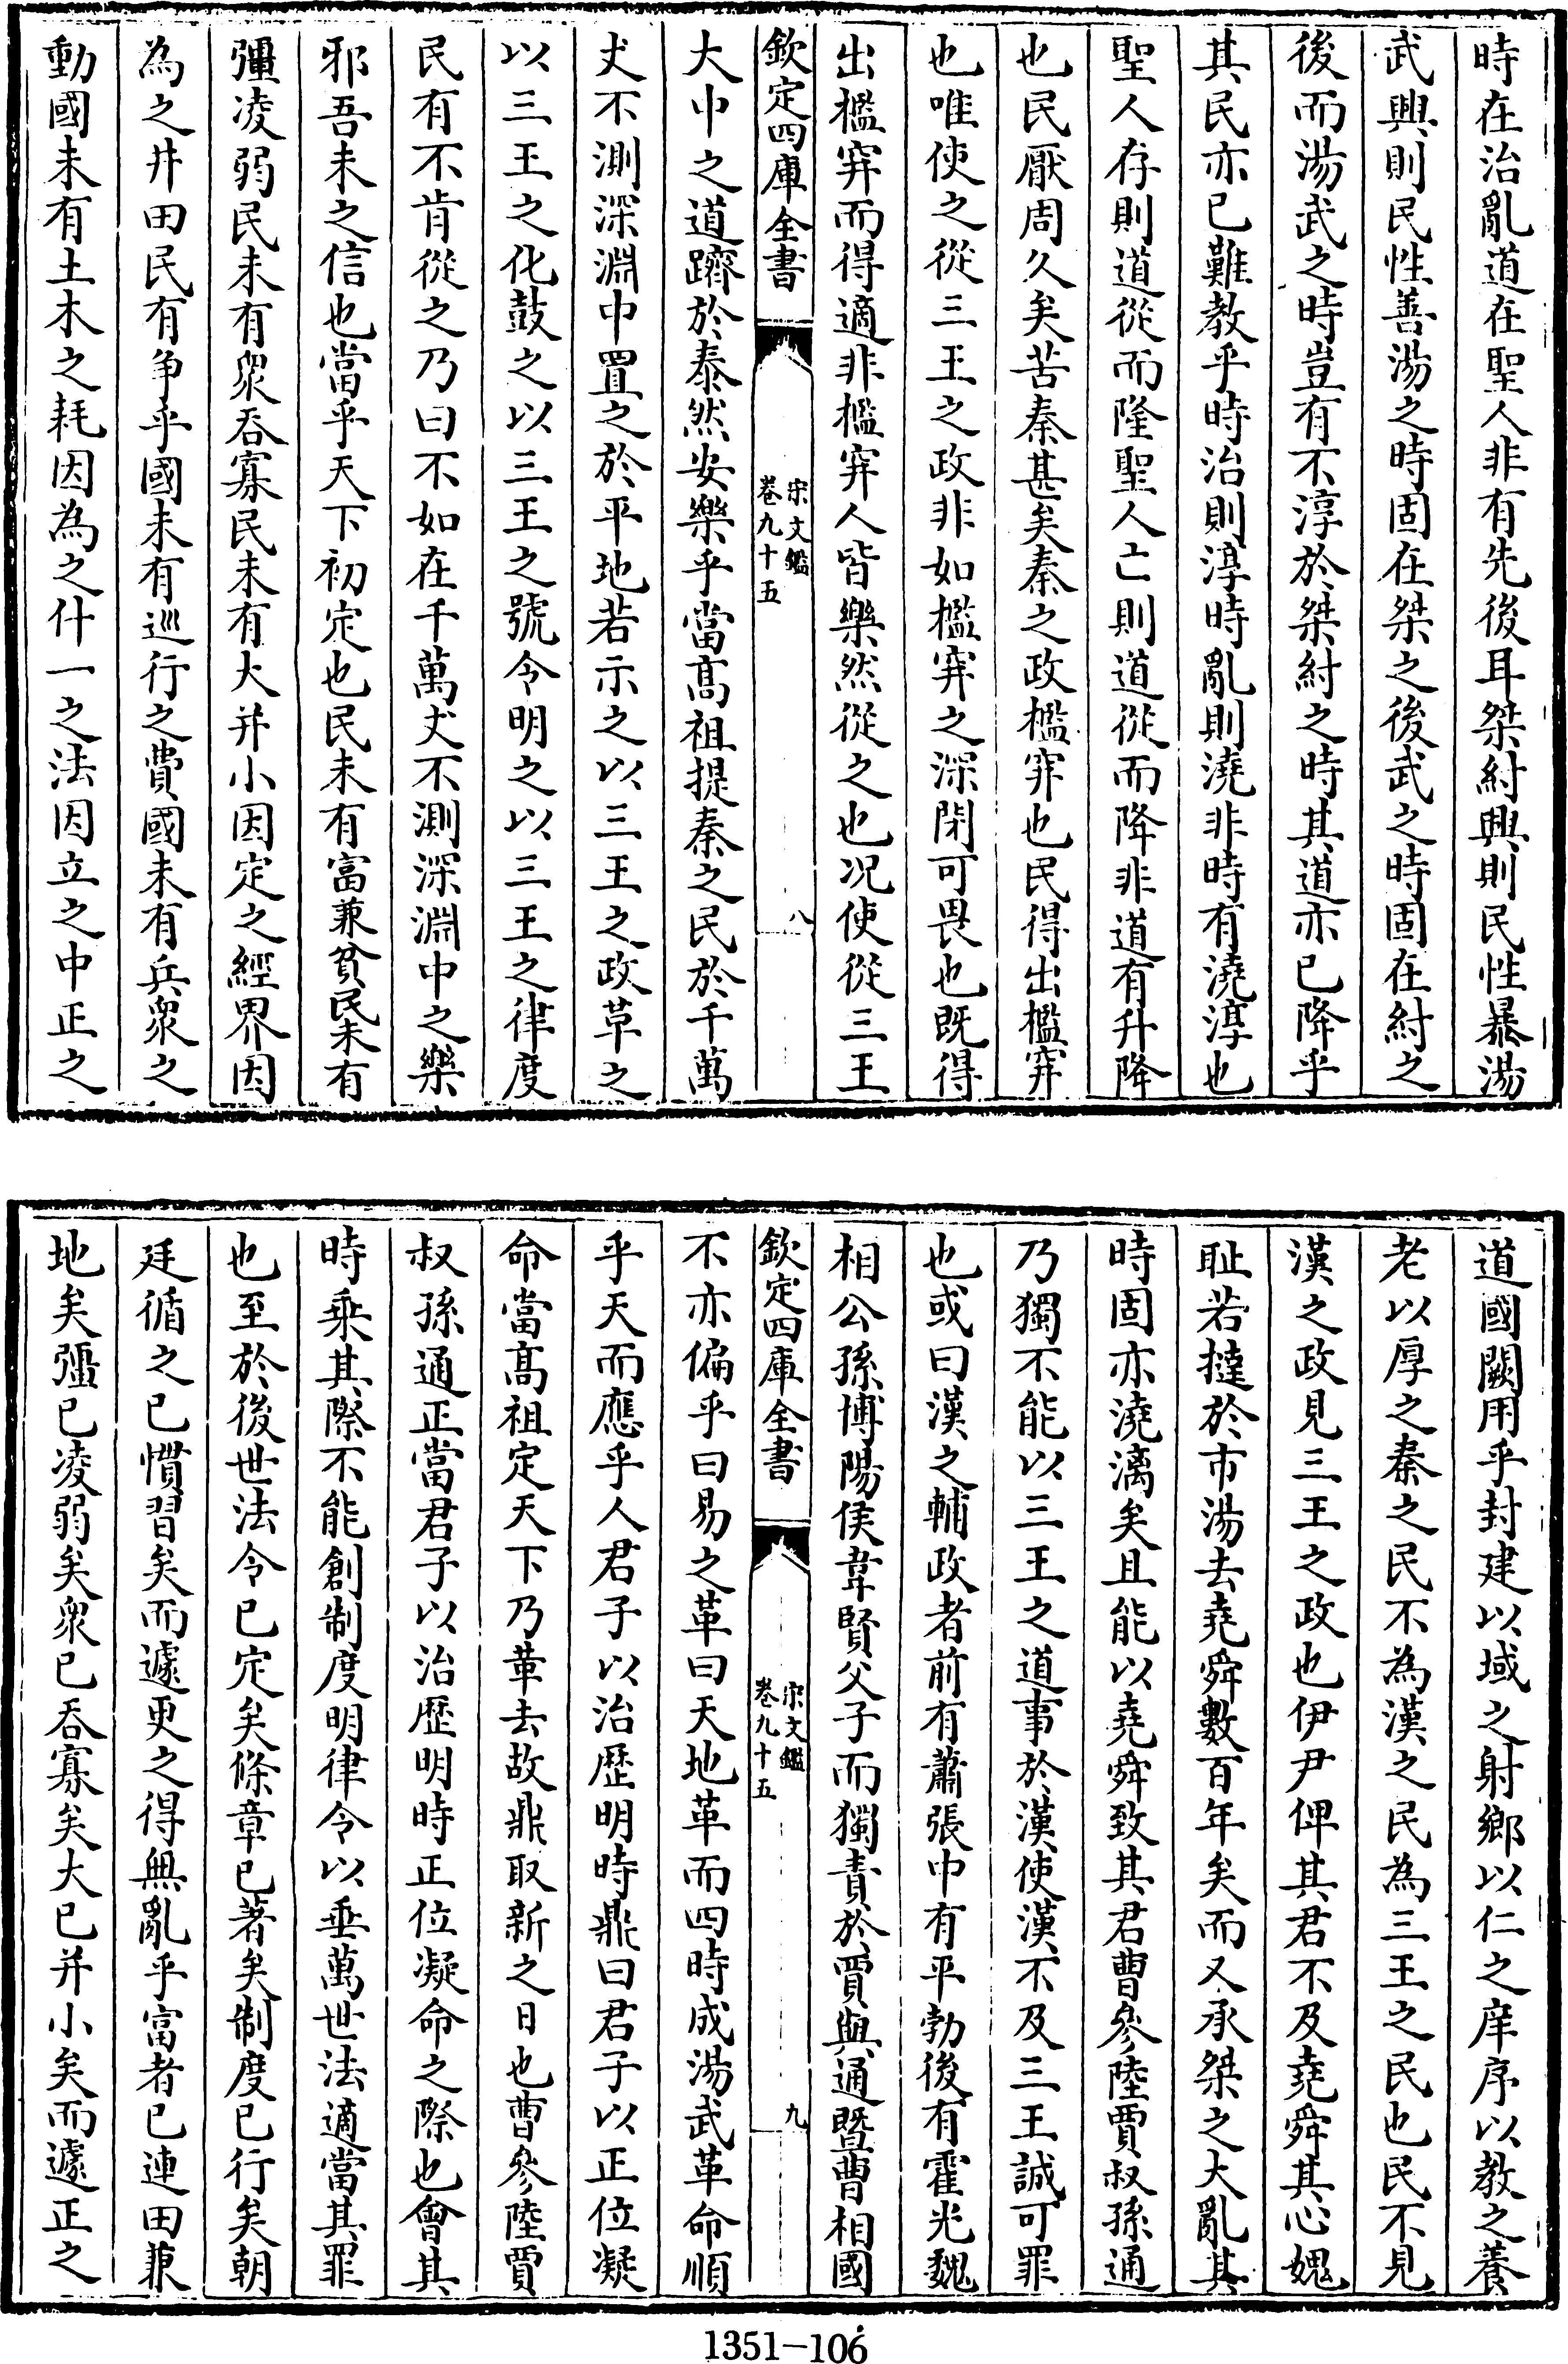 時在治亂道在聖人非有先後耳桀紂興則民性暴湯
武興則民性善湯之時固在桀之後武之時固在紂之
後而湯武之時豈有不淳於桀紂之時其道亦已降乎
其民亦已難教乎時治則淳時亂則澆非時有澆淳也
聖人存則道從而隆聖人亡則道從而降非道有升降
也民厭周久矣苦秦甚矣秦之政檻穽也民得出檻穽
也唯使之從三王之政非如檻穽之深閉可畏也既得
出檻穽而得適非檻穽人皆樂然從之也况使從三王
欽定四庫全書
宋文鑑
卷九十五
八
大中之道躋於泰然安樂乎當髙祖提秦之民於千萬
丈不測深淵中置之於平地若示之以三王之政革之
以三王之化鼓之以三王之號令明之以三王之律度
民有不肯從之乃曰不如在千萬丈不測深淵中之樂
邪吾未之信也當乎天下初定也民未有富兼貧民未有
彊凌弱民未有衆呑寡民未有大并小因定之經界因
為之井田民有爭乎國未有巡行之費國未有兵衆之
動國未有土木之耗因為之什一之法因立之中正之
道國闕用乎封建以域之射鄉以仁之庠序以教之養
老以厚之秦之民不為漢之民為三王之民也民不見
漢之政見三王之政也伊尹俾其君不及堯舜其心媿
耻若撻於市湯去堯舜數百年矣而又承桀之大亂其
時固亦澆漓矣且能以堯舜致其君曹參陸賈叔孫通
乃獨不能以三王之道事於漢使漢不及三王誠可罪
也或曰漢之輔政者前有蕭張中有平勃後有霍光魏
相公孫博陽侯韋賢父子而獨責於賈與通暨曹相國
欽定四庫全書
宋文鑑
卷九十五
九
不亦偏乎曰易之革曰天地革而四時成湯武革命順
乎天而應乎人君子以治歴明時鼎曰君子以正位凝
命當髙祖定天下乃革去故鼎取新之日也曹參陸賈
叔孫通正當君子以治歴明時正位凝命之際也會其
時乘其際不能創制度明律令以垂萬世法適當其罪
也至於後世法令已定矣條章已著矣制度已行矣朝
廷循之已慣習矣而遽更之得無亂乎富者已連田兼
地矣彊已凌弱矣衆已呑寡矣大已并小矣而遽正之
1351-106